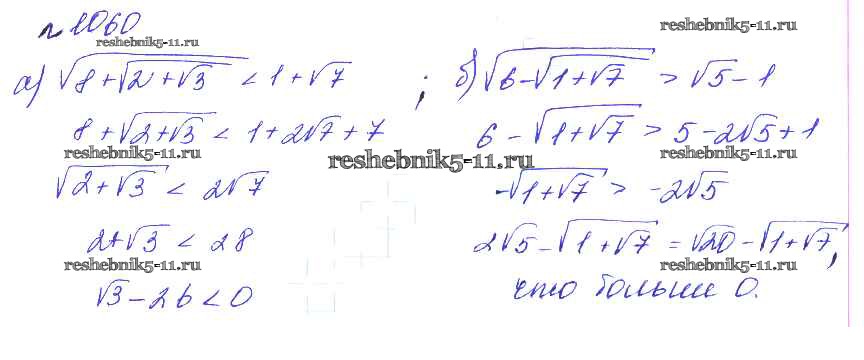 № 1060
reshebnik5-11.ru
reshebnik5-11.ru
а) √(8+√(2+√3)) < 1+√7 ; б) √(6-√(1+√7)) > √5-1
8+√(2+√3) < 1+2√7+7 6-√(1+√7) > 5-2√5+1
reshebnik5-11.ru reshebnik5-11.ru reshebnik5-11.ru
√(2+√3) < 2√7 -√(1+√7) > -2√5
2+√3 < 28 2√5-√(1+√7) = √20-√(1+√7),
reshebnik5-11.ru reshebnik5-11.ru
√3-26<0 что больше 0.